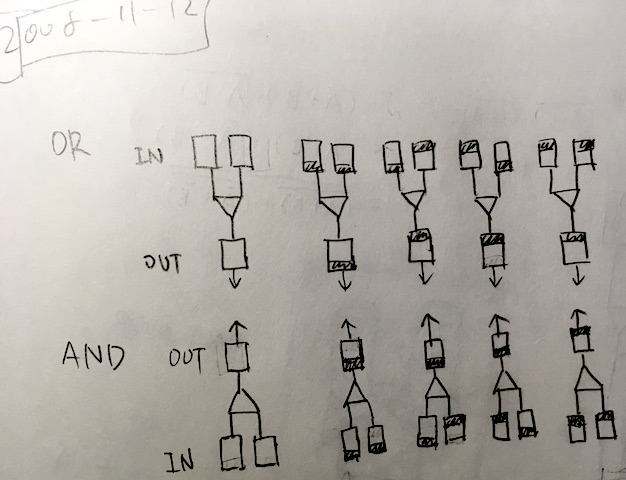 2008-11-12
OR IN
OUT
AND OUT
IN